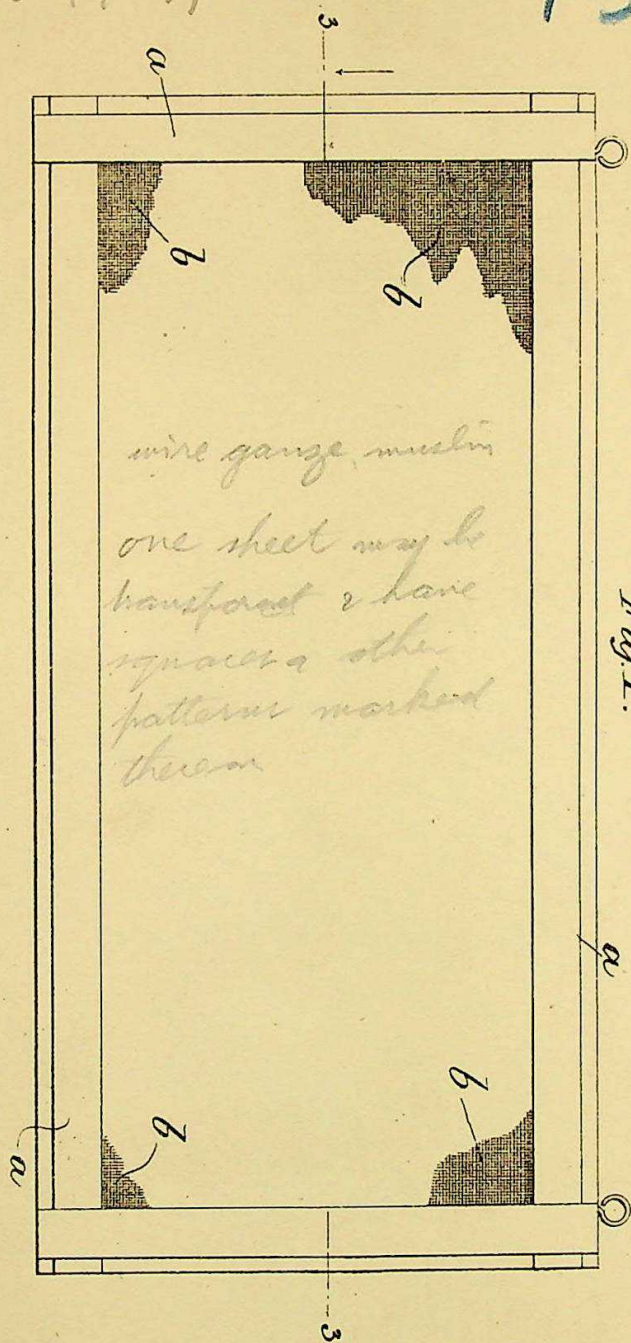 3
a
b
b
wire gauze, muslin
one sheet may be
transparent & have
squares or other
patterns marked
thereon
Fig. 1.
a
b
b
a
3